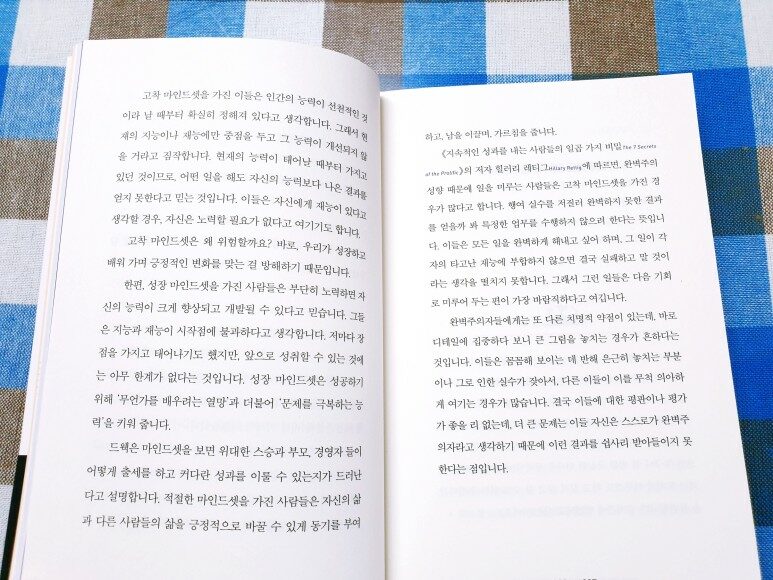 고착 마인드셋을 가진 이들은 인간의 능력이 선천적인 것
이라 날 때부터 확실히 정해져 있다고 생각합니다. 그래서 현
재의 지능이나 재능에만 중점을 두고 그 능력이 개선되지 않
을 거라고 짐작합니다. 현재의 능력이 태어날 때부터 가지고
있던 것이므로, 어떤 일을 해도 자신의 능력보다 나은 결과를
얻지 못한다고 믿는 것입니다. 이들은 자신에게 재능이 있다고
생각할 경우, 자신은 노력할 필요가 없다고 여기기도 합니다.
고착 마인드셋은 왜 위험할까요? 바로, 우리가 성장하고
배워 가며 긍정적인 변화를 맞는 걸 방해하기 때문입니다.
한편, 성장 마인드셋을 가진 사람들은 부단히 노력하면 자
신의 능력이 크게 향상되고 개발될 수 있다고 믿습니다. 그들
은 지능과 재능이 시작점에 불과하다고 생각합니다. 저마다 장
점을 가지고 태어나기도 했지만, 앞으로 성취할 수 있는 것에
는 아무 한계가 없다는 것입니다. 성장 마인드셋은 성공하기
위해 '무언가를 배우려는 열망'과 더불어 '문제를 극복하는 능
력'을 키워 줍니다.
드웩은 마인드셋을 보면 위대한 스승과 부모, 경영자 들이
어떻게 출세를 하고 커다란 성과를 이룰 수 있는지가 드러난
다고 설명합니다. 적절한 마인드셋을 가진 사람들은 자신의 삶
과 다른 사람들의 삶을 긍정적으로 바꿀 수 있게 동기를 부여
하고, 남을 이끌며, 가르침을 줍니다.
《지속적인 성과를 내는 사람들의 일곱 가지 비밀The 7 Secrets
of the Prolific》의 저자 힐러리 레티그Hillary Rettig에 따르면, 완벽주의
성향 때문에 일을 미루는 사람들은 고착 마인드셋을 가진 경
우가 많다고 합니다. 행여 실수를 저질러 완벽하지 못한 결과
를 얻을까 봐 특정한 업무를 수행하지 않으려 한다는 뜻입니
다. 이들은 모든 일을 완벽하게 해내고 싶어 하며, 그 일이 각
자의 타고난 재능에 부합하지 않으면 결국 실패하고 말 것이
라는 생각을 떨치지 못합니다. 그래서 그런 일들은 다음 기회
로 미루어 두는 편이 가장 바람직하다고 여깁니다.
완벽주의자들에게는 또 다른 치명적 약점이 있는데, 바로
디테일에 집중하다 보니 큰 그림을 놓치는 경우가 흔하다는
것입니다. 이들은 꼼꼼해 보이는 데 반해 은근히 놓치는 부분
이나 그로 인한 실수가 잦아서, 다른 이들이 이를 무척 의아하
게 여기는 경우가 많습니다. 결국 이들에 대한 평판이나 평가
가 좋을 리 없는데, 더 큰 문제는 이들 자신은 스스로가 완벽주
의자라고 생각하기 때문에 이런 결과를 섭사리 받아들이지 못
한다는 점입니다.